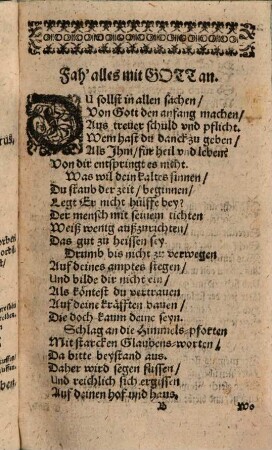 Fah' alles mit GOTT an.
DU sollst in allen sachen/
Von Gott den anfang machen/
Aus treuer schuld und pflicht.
Wem hast du danck zu geben/
Als Jhm/ für heil und leben?
Von dir entspringt es nicht.
Was wil dein kaltes sinnen/
Du staub der zeit/ beginnen/
Legt Er nicht hülffe bey?
Der mensch mit seinem tichten
Weiß wenig außzurichten/
Das gut zu heissen sey.
Drumb bis nicht zu verwegen
Auf deines amptes stegen/
Und bilde dir nicht ein/
Als köntest du vertrauen/
Auf deine kräfften bauen/
Die doch kaum deine seyn.
Schlag an die Himmels-pforten
Mit starcken Glaubens-worten/
Da bitte beystand aus.
Daher wird segen flüssen/
Und reichlich sich ergissen
Auf deinen hof und haus.
B Wo